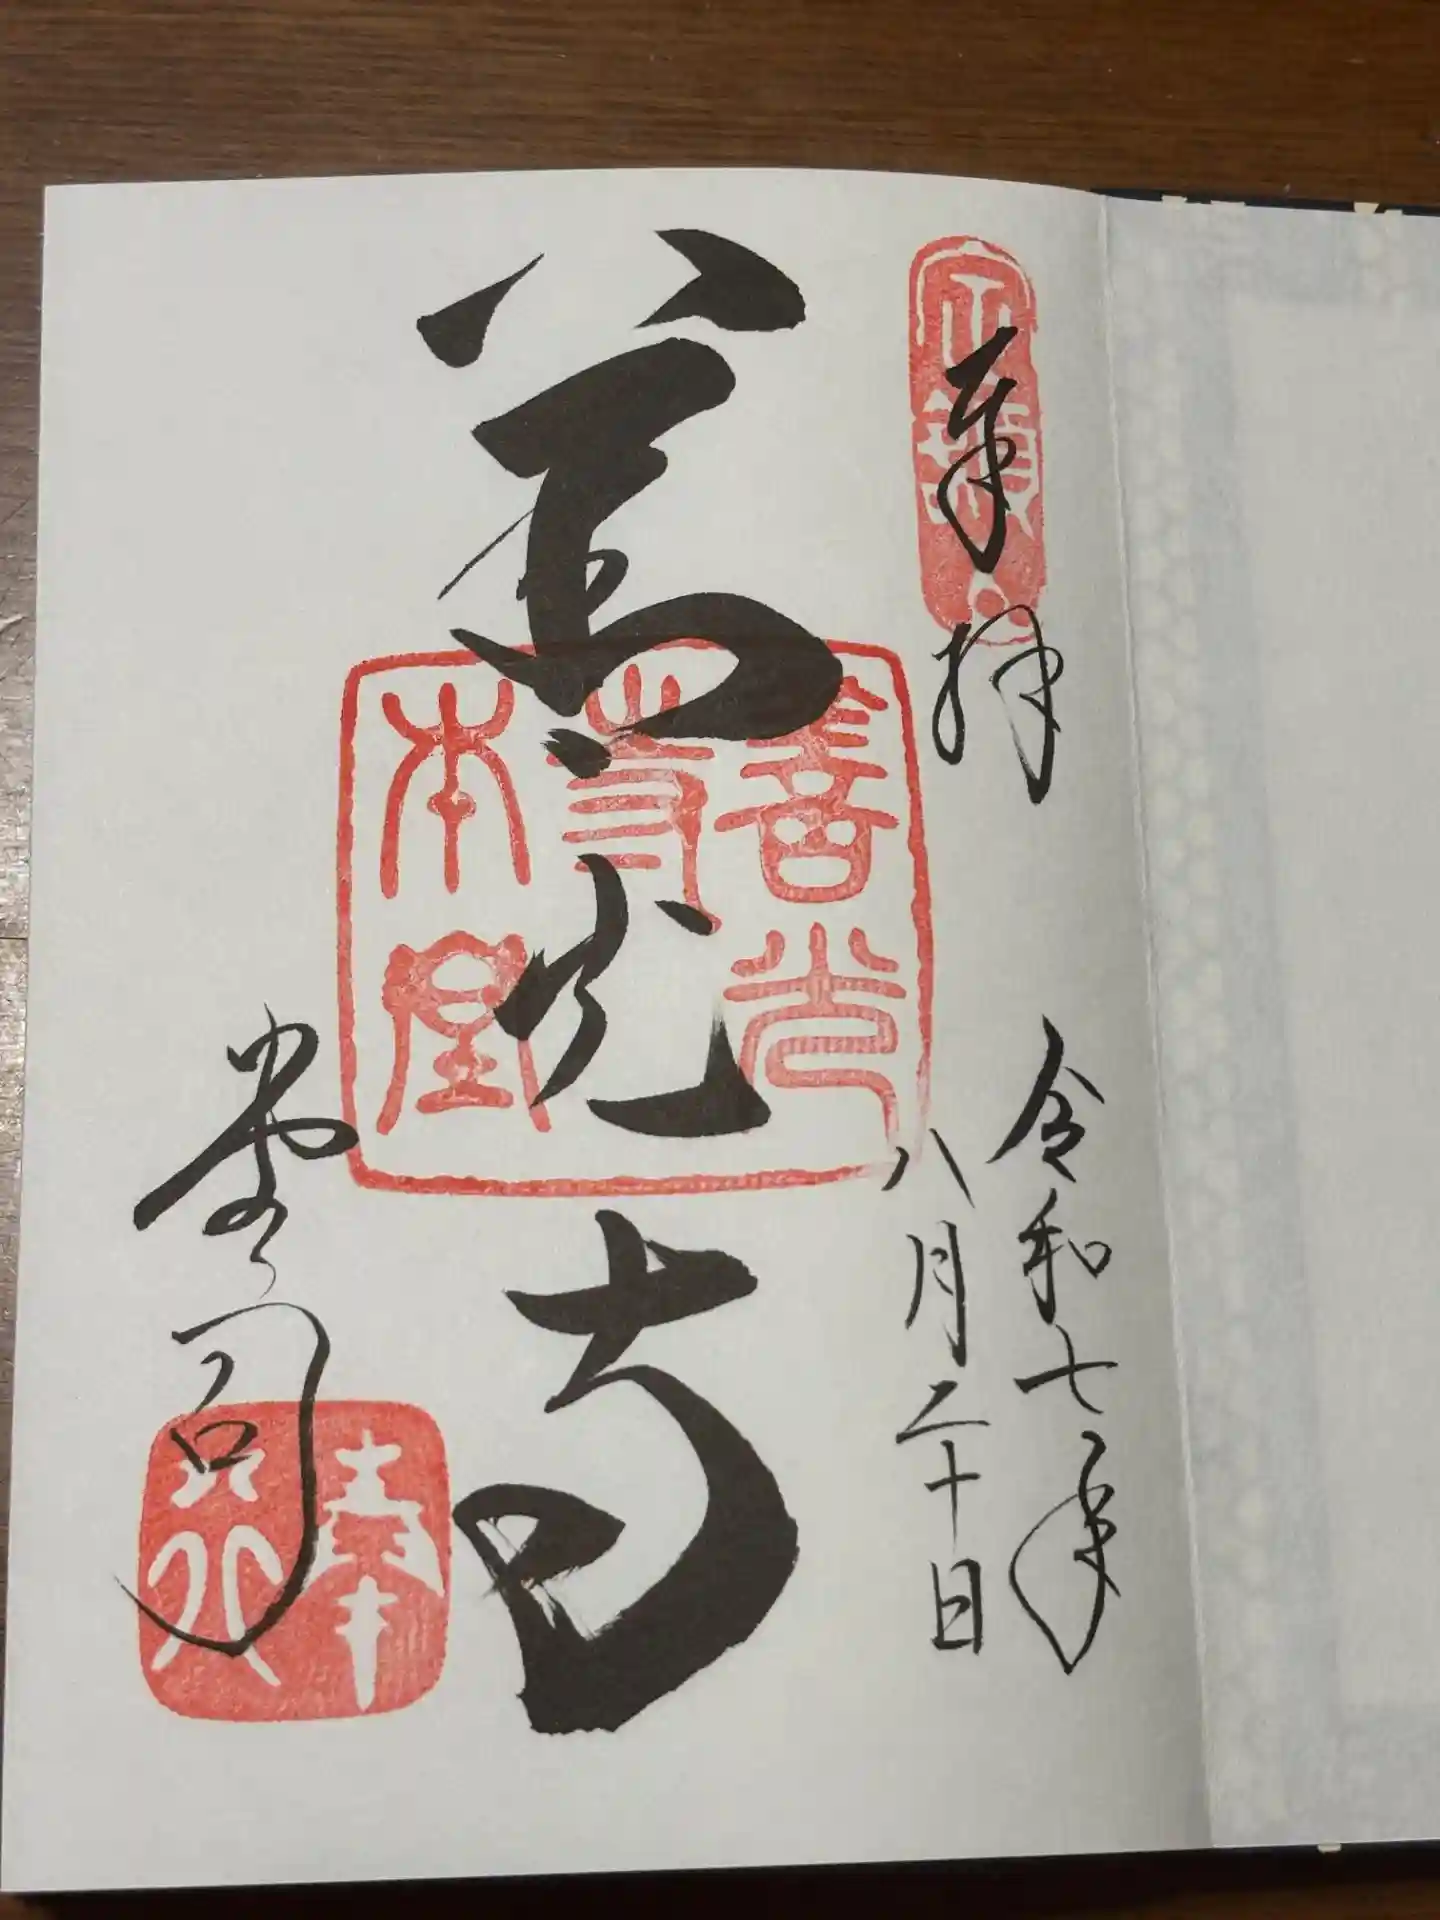 奉拝
令和七年
八月二十日
善光寺
善光
寺
本堂
堂司